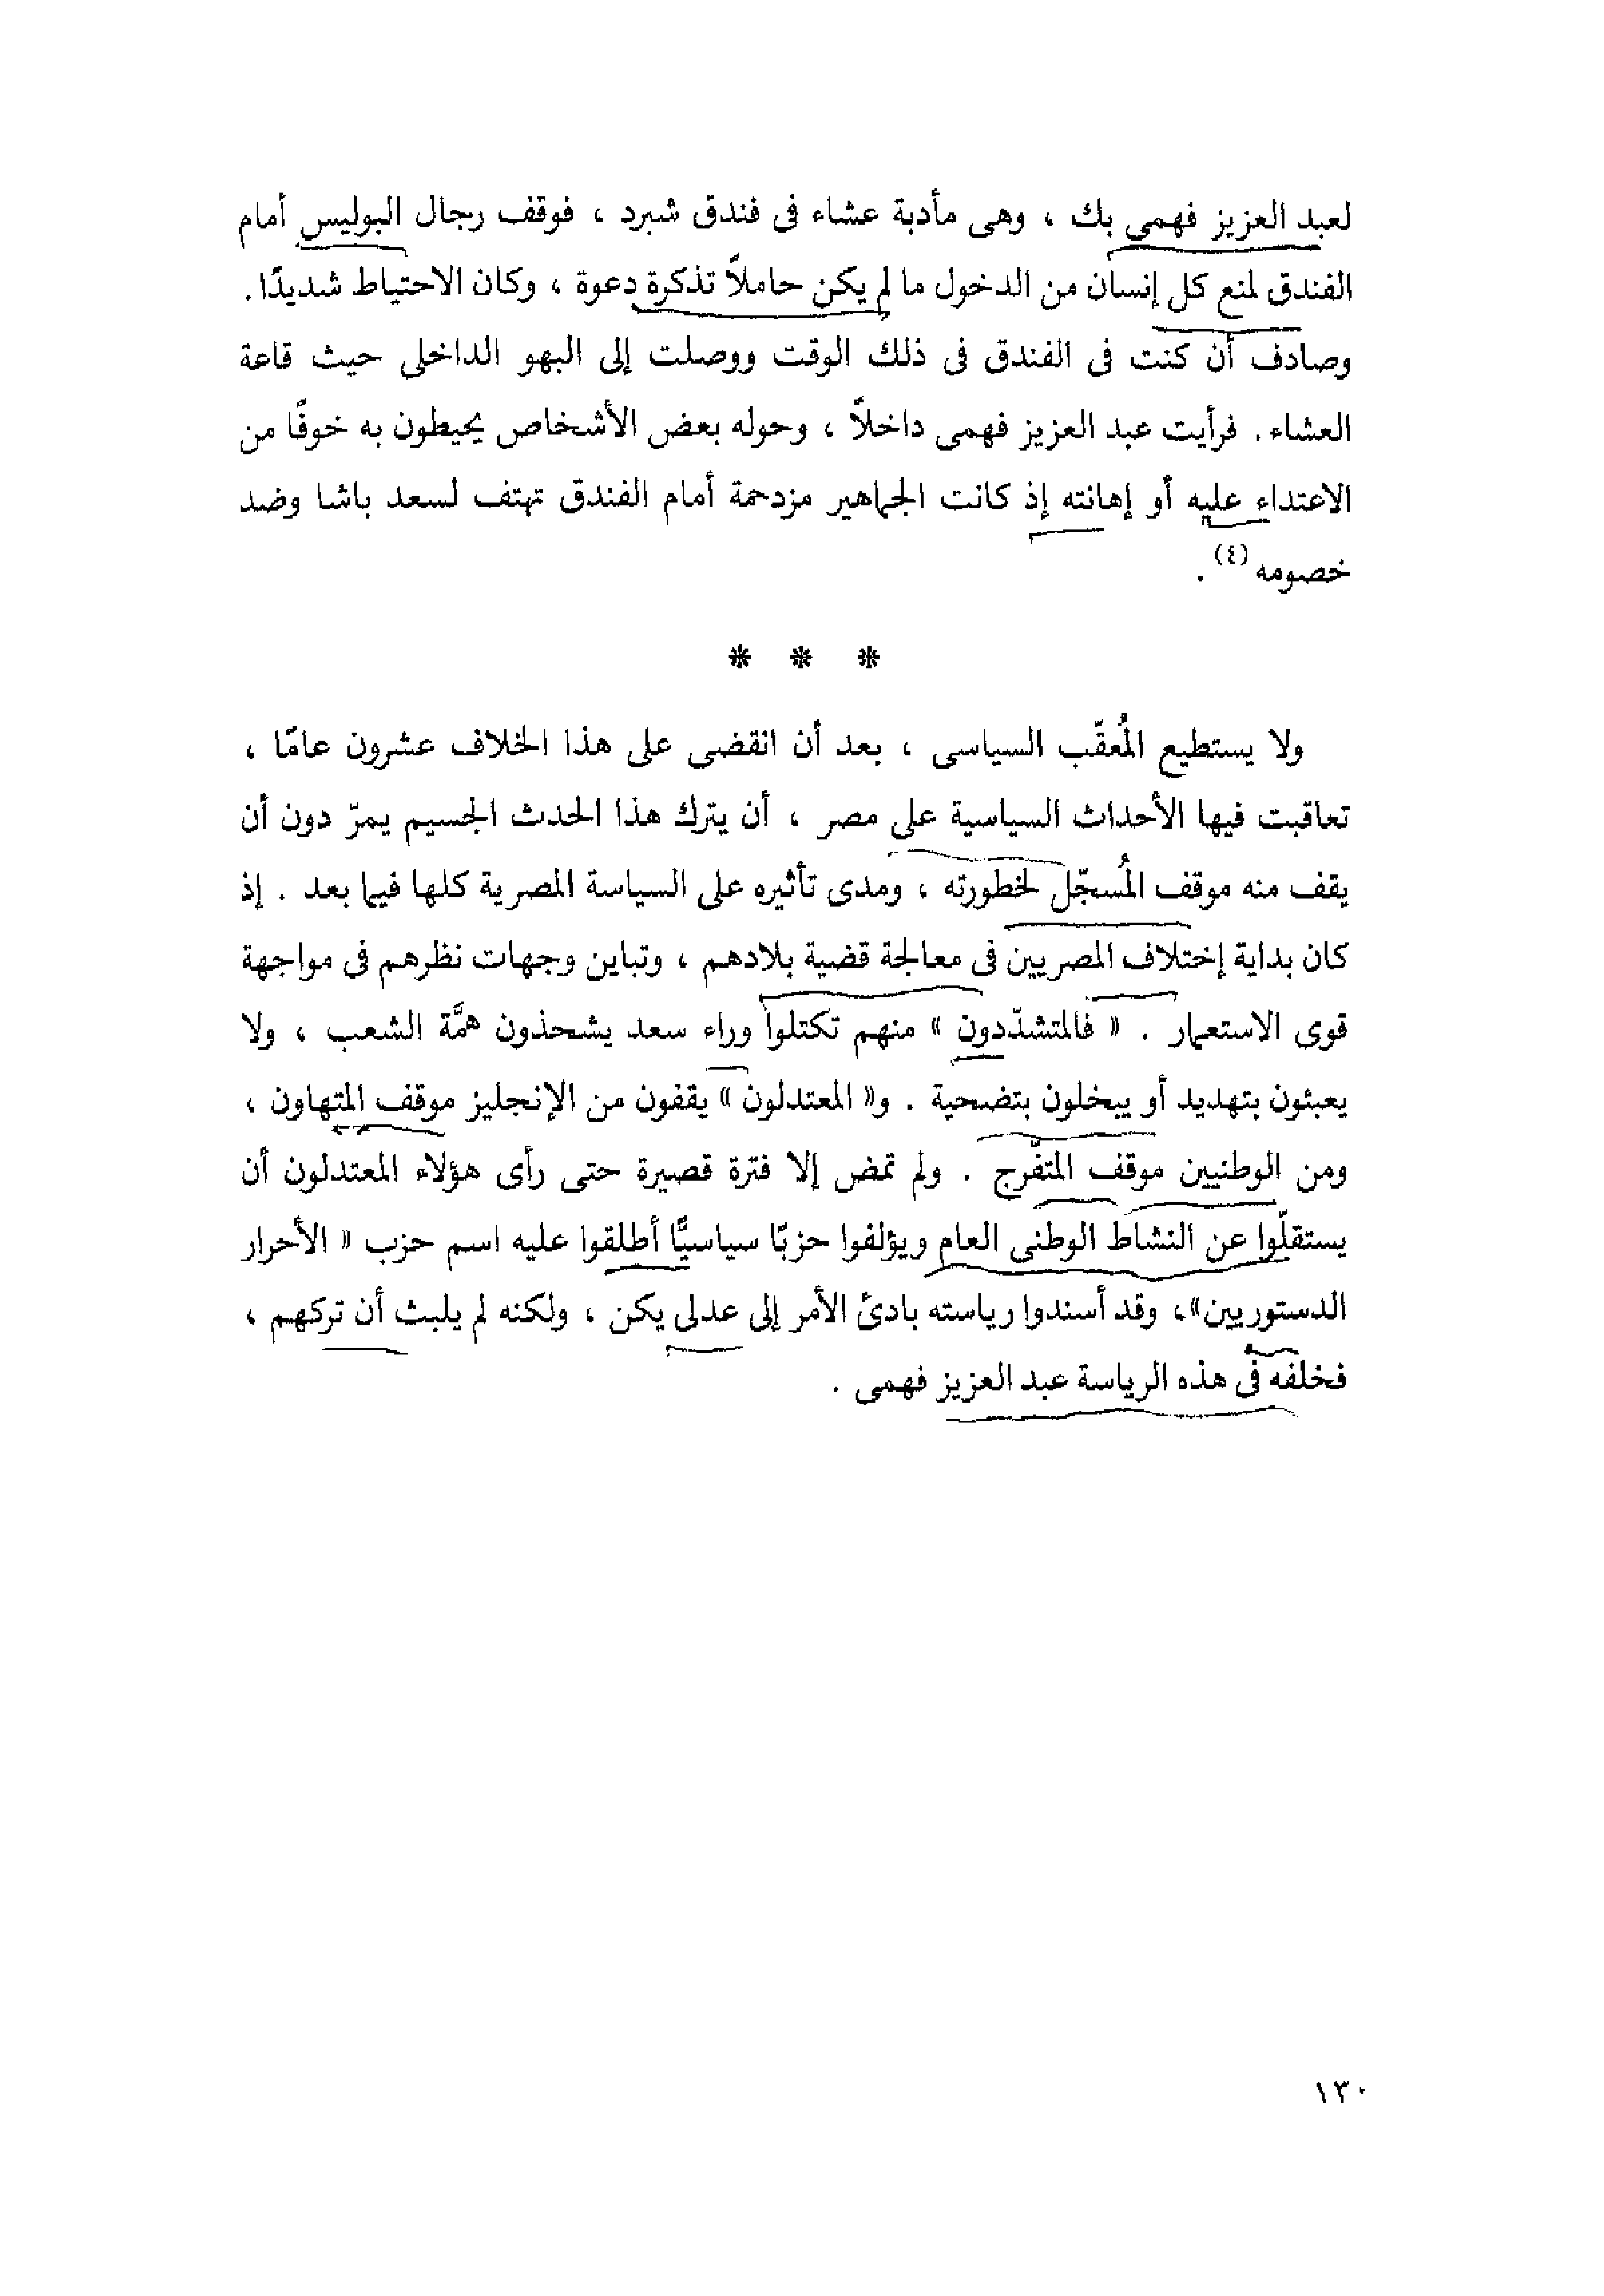 لعبد العزيز فهمى بك ، وهى مأدبة عشاء فى فندق شبرد ، فوقف رجال البوليس أمام
الفندق لمنع كل إنسان من الدخول ما لم يكن حاملاً تذكرة دعوة ، وكان الاحتياط شديدًا .
وصادف أن كنت فى الفندق فى ذلك الوقت ووصلت إلى البهو الداخلى حيث قاعة
العشاء . فرأيت عبد العزيز فهمى داخلاً ، وحوله بعض الأشخاص يحيطون به خوفًا من
الاعتداء عليه أو إهانته إذ كانت الجماهير مزدحمة أمام الفندق تهتف لسعد باشا وضد
خصومه (٤) .
* * *
ولا يستطيع المُعقّب السياسى ، بعد أن انقضى على هذا الخلاف عشرون عامًا ،
تعاقبت فيها الأحداث السياسية على مصر ، أن يترك هذا الحدث الجسيم يمرّ دون أن
يقف منه موقف المُسجّل لخطورته ، ومدى تأثيره على السياسة المصرية كلها فيما بعد . إذ
كان بداية إختلاف المصريين فى معالجة قضية بلادهم ، وتباين وجهات نظرهم فى مواجهة
قوى الاستعمار . « فالمتشدّدون » منهم تكتلوا وراء سعد يشحذون همَّة الشعب ، ولا
يعبئون بتهديد أو يبخلون بتضحية . و« المعتدلون » يقفون من الإنجليز موقف المتهاون ،
ومن الوطنيين موقف المتفّرج . ولم تمض إلا فترة قصيرة حتى رأى هؤلاء المعتدلون أن
يستقلّوا عن النشاط الوطنى العام ويؤلفوا حزبًا سياسيًّا أطلقوا عليه اسم حزب « الأحرار
الدستوريين»، وقد أسندوا رياسته بادئ الأمر إلى عدلى يكن ، ولكنه لم يلبث أن تركهم ،
فخلفه فى هذه الرياسة عبد العزيز فهمى .
١٣٠